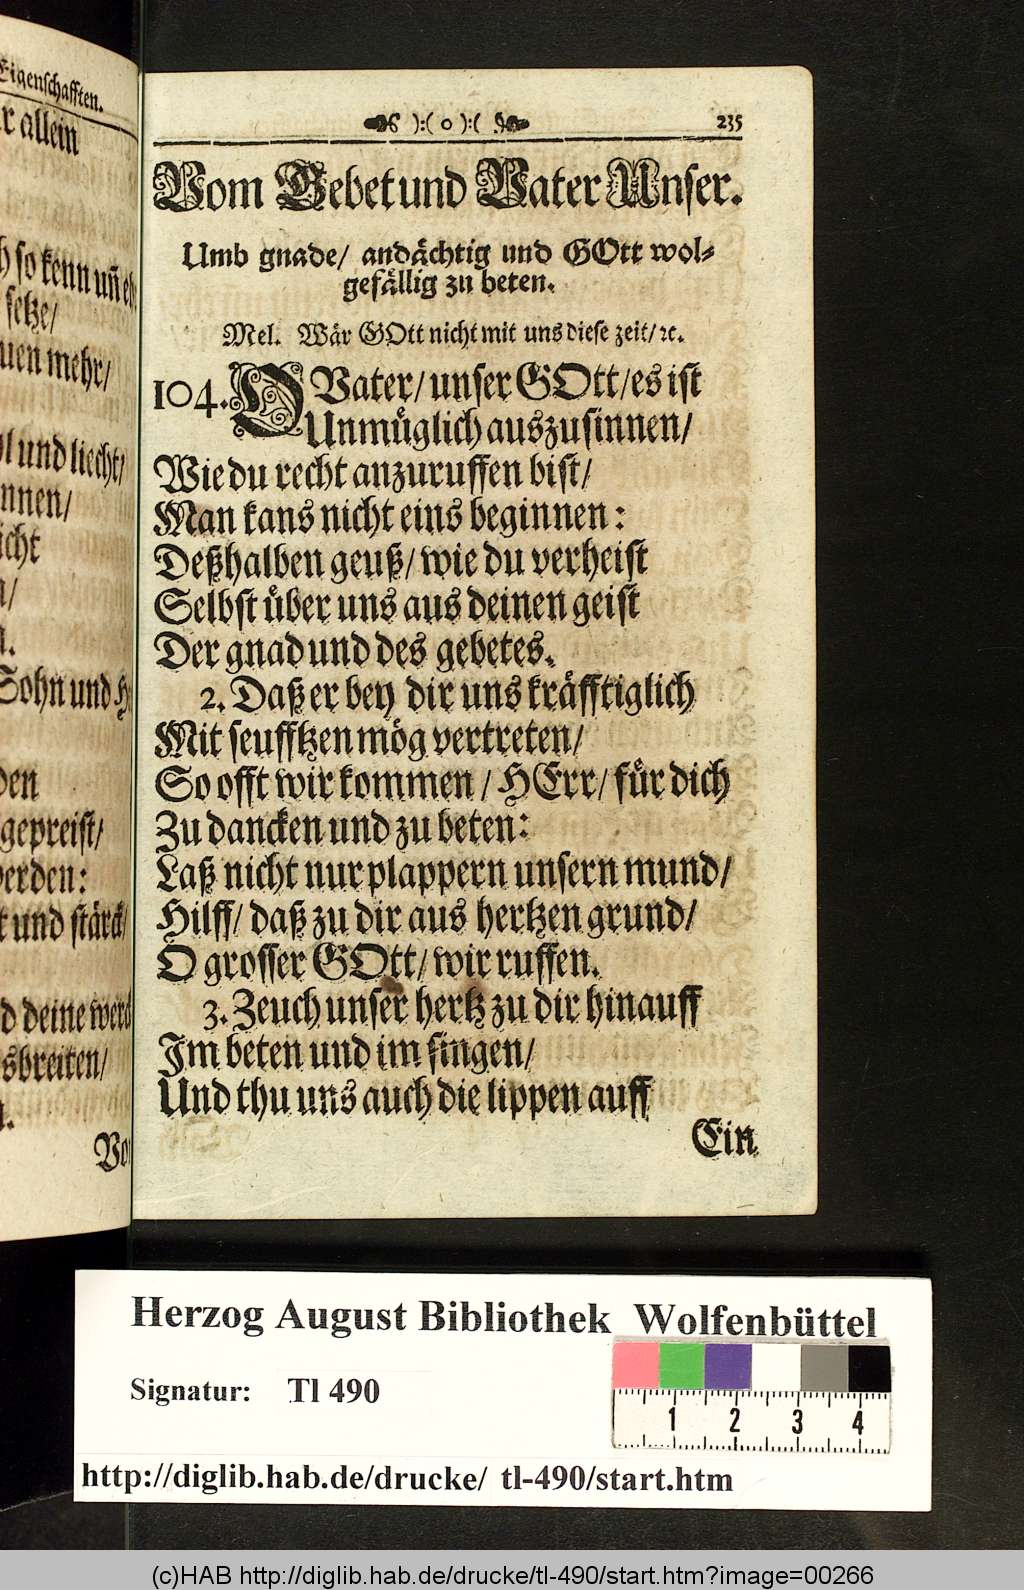 Eigenschafften.
r allein
so kenn uñ
setze/
uen mehr/
und liecht/
nnen/
icht
n/
n.
Sohn und
den
gepreist/
erden:
t und stärck/
d deine werck
sbreiten/
n.
Vom
):( o ):( 235
Vom Gebet und Vater Unser.
Umb gnade/ andächtig und GOtt wol-
gefällig zu beten.
Mel. Wär GOtt nicht mit uns diese zeit/ ꝛc.
104. O Vater/ unser GOtt/ es ist
Unmüglich auszusinnen/
Wie du recht anzuruffen bist/
Man kans nicht eins beginnen:
Deßhalben geuß/ wie du verheist
Selbst über uns aus deinen geist
Der gnad und des gebetes.
2. Daß er bey dir uns kräfftiglich
Mit seufftzen mög vertreten/
So offt wir kommen/ HErr/ für dich
Zu dancken und zu beten:
Laß nicht nur plappern unsern mund/
Hilff/ daß zu dir aus hertzen grund/
O grosser GOtt/ wir ruffen.
3. Zeuch unser hertz zu dir hinauff
Im beten und im singen/
Und thu uns auch die lippen auff
Ein
Herzog August Bibliothek Wolfenbüttel
Signatur: Tl 490
1 2 3 4
http://diglib.hab.de/drucke/ tl-490/start.htm
(c)HAB http://diglib.hab.de/drucke/tl-490/start.htm?image=00266